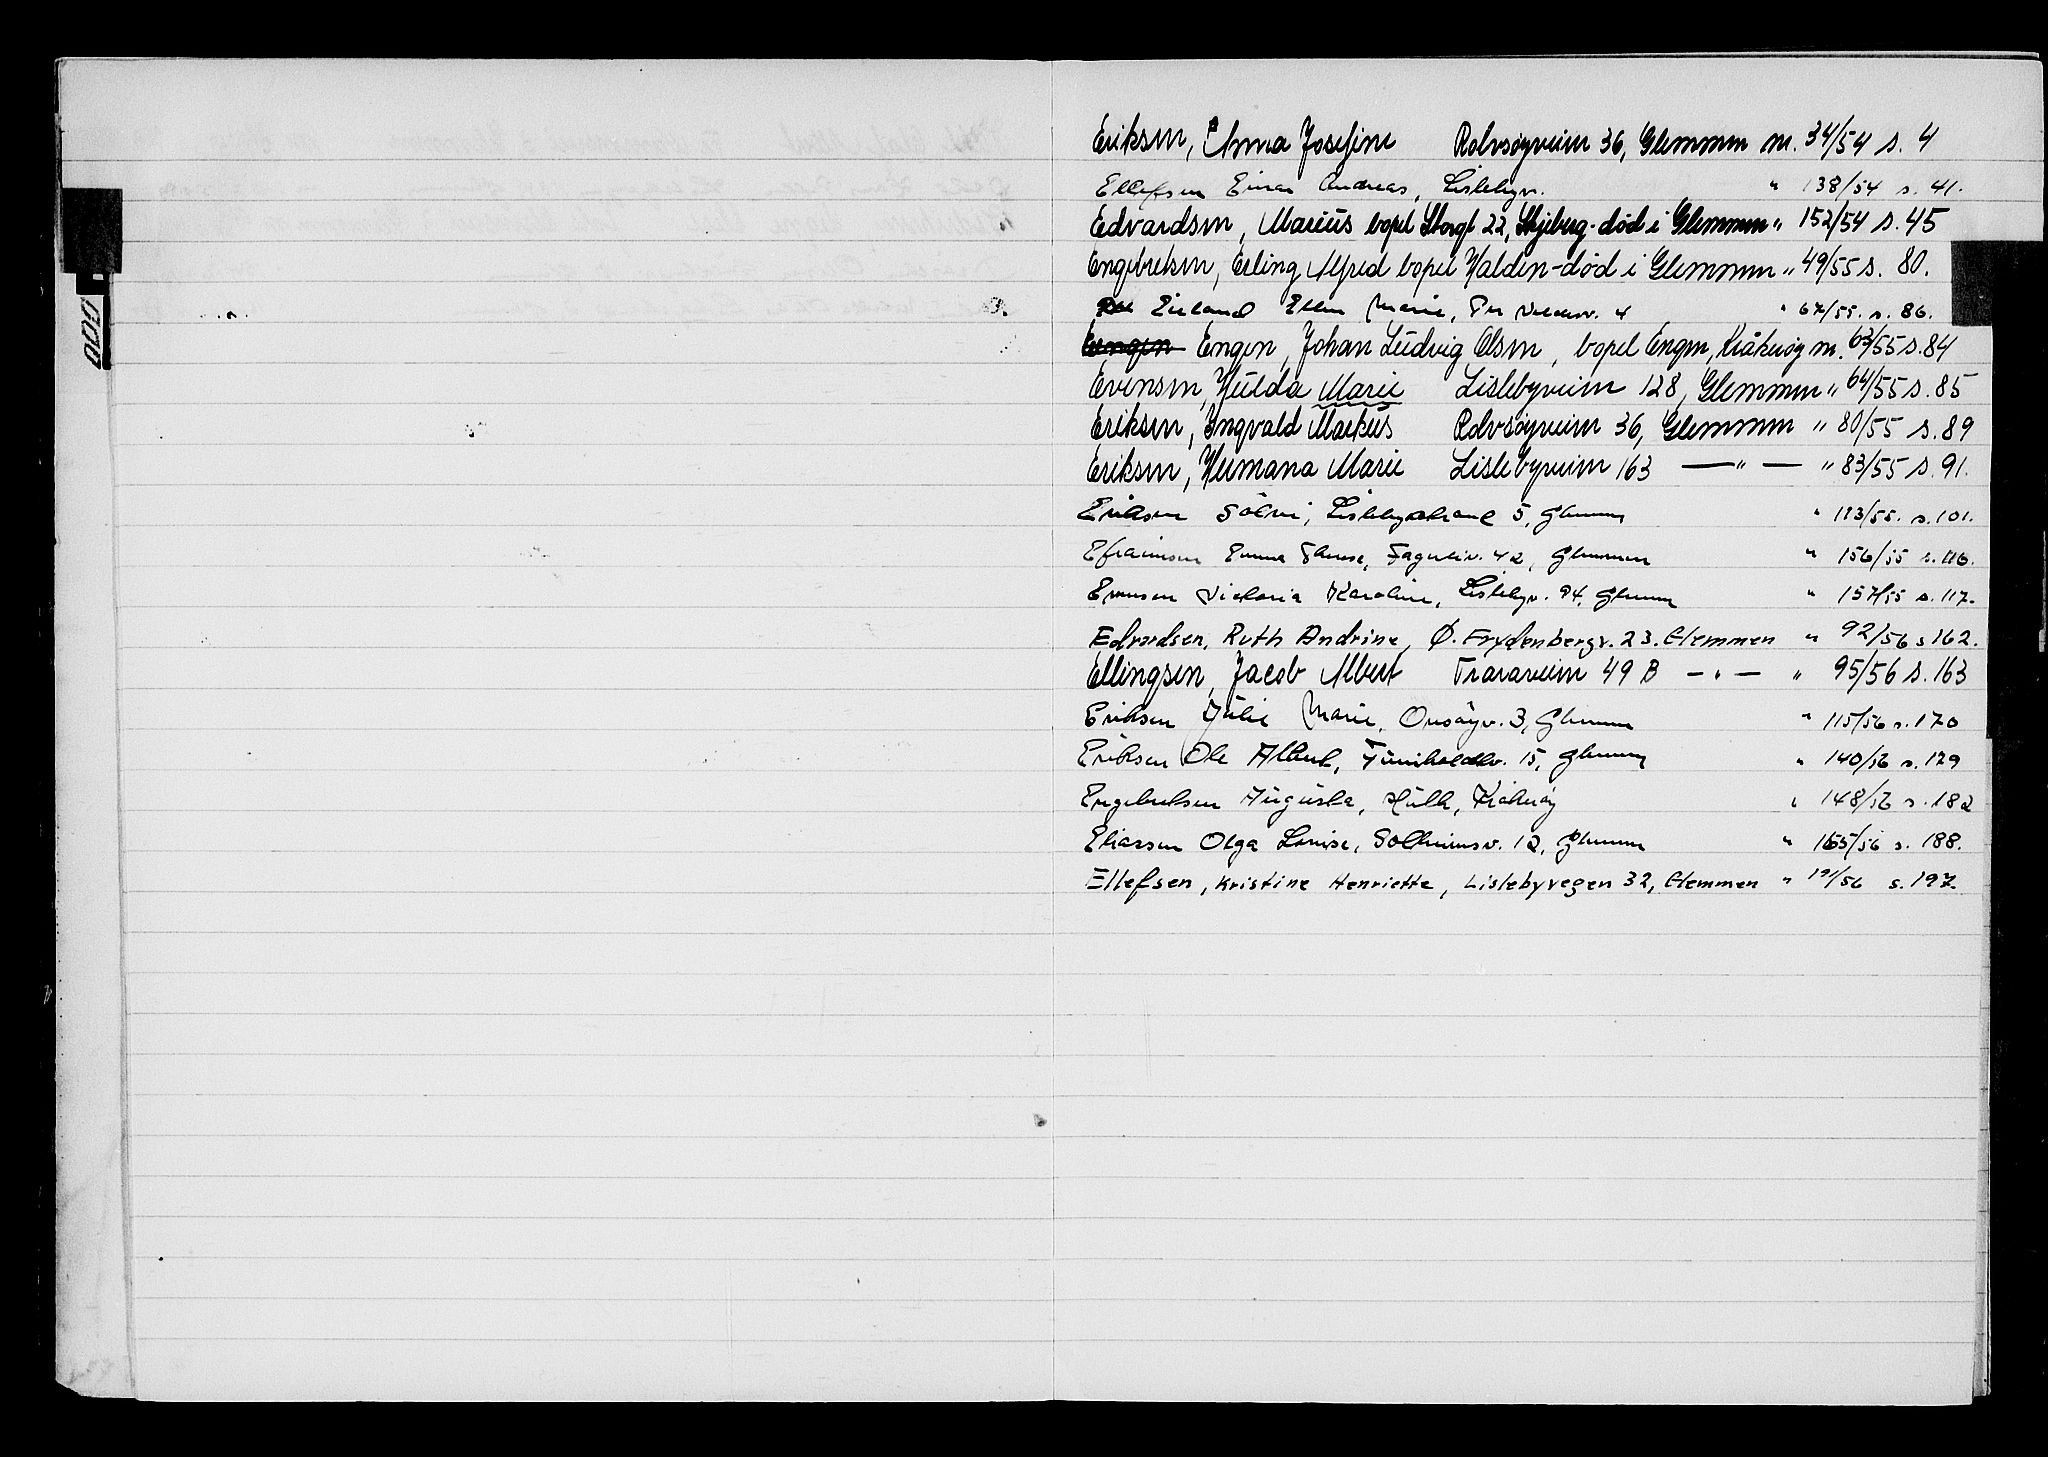 Eriksen, Anna Josefine Rolvsøyveien 36, Glemmen nr. 34/54 s. 4
Ellefsen Einar Andreas, Lislebyv. " 138/54 s. 41.
Edvardsen, Marius bopel Storgt 22, Skjeberg-død i Glemmen " 152/54 s. 45
Engebretsen, Erling Alfred bopel Halden-død i Glemmen " 49/55 s. 80.
Eieland Ellen Marie, 4 " 67/55. s. 86.
Engen, Johan Ludvig Olsen, bopel Engen, Kråkerøy nr. 63/55 s. 84
Evensen, Hulda Marie Lislebyveien 128, Glemmen " 64/55 s. 85
Eriksen, Ingvald Markus Rolvsøyveien 36, Glemmen " 80/55 s. 89
Eriksen, Hermana Marie Lislebyveien 163 — " — " 83/55 s. 91.
Eriksen Sölvi, Lislebystrand 5, Glemmen " 113/55. s. 101.
Efraimsen Emma Therese, Fagerliv. 42, Glemmen " 156/55 s. 116.
Evensen Victoria Karoline, Lislebyv. 94, Glemmen " 157/55 s. 117.
Edvardsen, Ruth Andrine, Ø. Frydenbergv. 23. Glemmen " 92/56 s 162.
Ellingsen, Jacob Albert Traraveien 49 B — " — " 95/56 s. 163
Eriksen Julie Marie, Onsøyv. 3, Glemmen " 115/56 s. 170
Eriksen Ole Albert, 15, Glemmen " 140/56 s. 179
Engebretsen Augusta, Kråkerøy " 148/56 s. 182
Eliassen Olga Lovise, Solheimsv. 12, Glemmen " 165/56 s. 188.
Ellefsen, Kristine Henriette, Lislebyvegen 32, Glemmen " 191/56 s. 197.